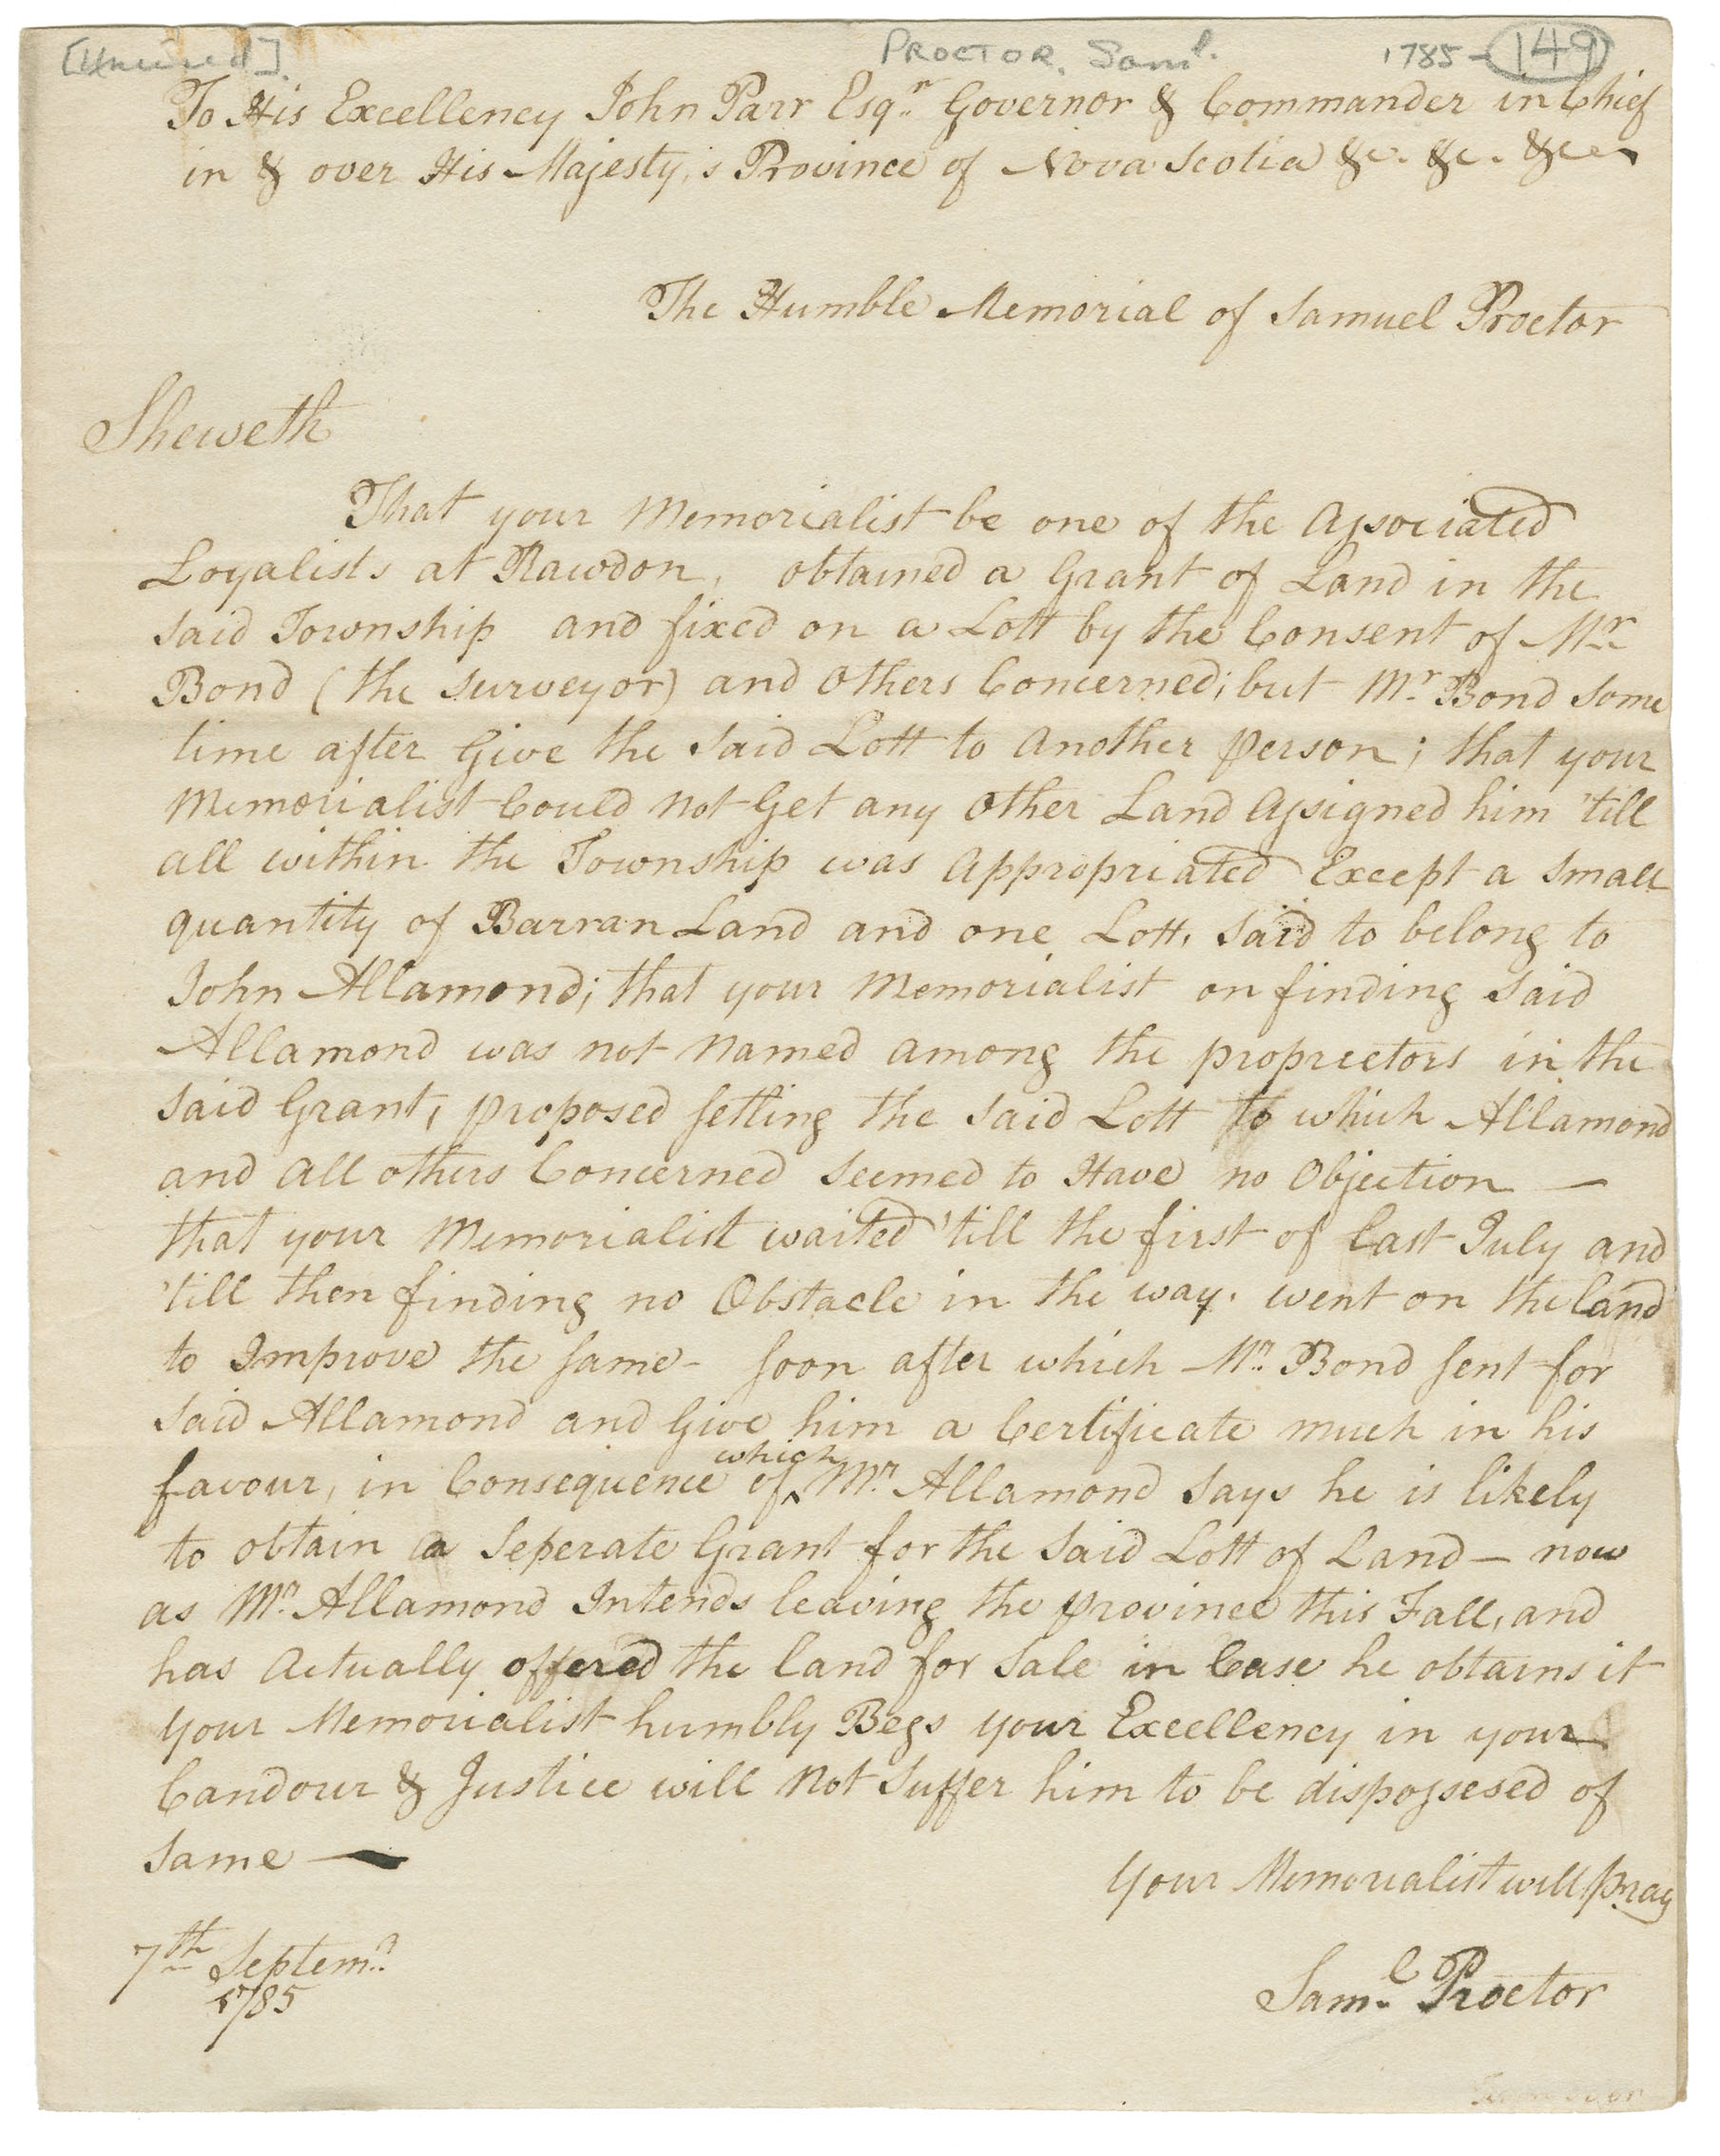 PROCTOR, Saml. 1785 - 149
To His Excellency John Parr Esqr. Governor & Commander in Chief
in & over His Majesty,s Province of Nova Scotia &c. &c. &c.
The Humble Memorial of Samuel Proctor
Sheweth
That your Memorialist be one of the Associated
Loyalists at Rawdon, obtained a Grant of Land in the
said Township and fixed on a Lott by the Consent of Mr.
Bond (the Surveyor) and Others Concerned; but Mr. Bond Some
time after Give the said Lott to Another person; that your
Memorialist Could Not Get any Other Land Assigned him 'till
all within the Township was Appropriated Except a Small
quantity of Barran Land and one Lott, Said to belong to
John Allamond; that your Memorialist on finding Said
Allamond was not Named among the proprietors in the
Said Grant, proposed setling the Said Lott to which Allamond
and all others Concerned Seemed to Have no Objection —
that your Memorialist waited 'till the first of last July and
'till then finding no Obstacle in the way. went on the land
to Improve the same - soon after which Mr. Bond sent for
Said Allamond and Give him a Certificate much in his
favour, in Consequence of which Mr. Allamond Says he is likely
to obtain a Seperate Grant for the Said Lott of Land — now
as Mr. Allamond Intends leaving the province this Fall, and
has Actually offered the land for Sale in Case he obtains it
your Memorialist humbly Begs your Excellency in your
Candour & Justice will Not Suffer him to be dispossesed of
Same —
Your Memorialist will pray
7th Septemr.
1785
Saml. Proctor